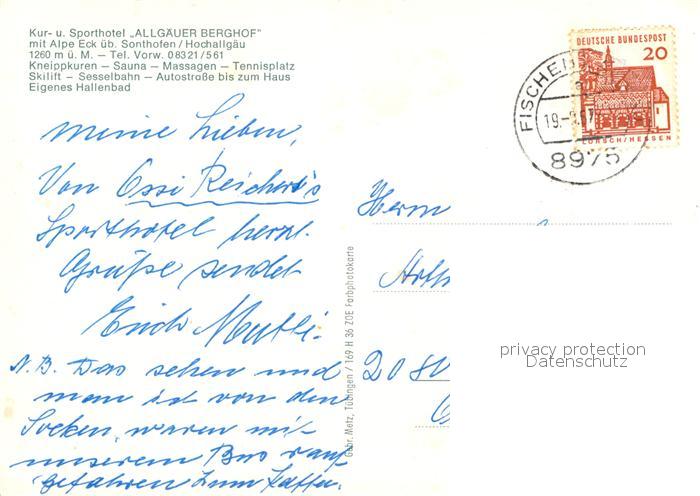 Kur- u. Sporthotel „ALLGÄUER BERGHOF"
mit Alpe Eck üb. Sonthofen / Hochallgäu
1260 m ü. M. — Tel. Vorw. 08321/561
Kneippkuren — Sauna — Massagen — Tennisplatz
Skilift — Sesselbahn — Autostraße bis zum Haus
Eigenes Hallenbad
Meine Lieben,
Von Ossi Reichert's
Sporthotel herzl.
Grüße sendet
Erich
N.B. Das sehen und
man ist von den
Socken, waren mit
unserem Bus rauf-
gefahren zum Kaffee.
Gebr. Metz, Tübingen / 169 H 36 ZOE Farbphotokarte
DEUTSCHE BUNDESPOST
20
LORSCH/HESSEN
FISCHEN
19.
67
8975
Herrn
privacy protection
Datenschutz